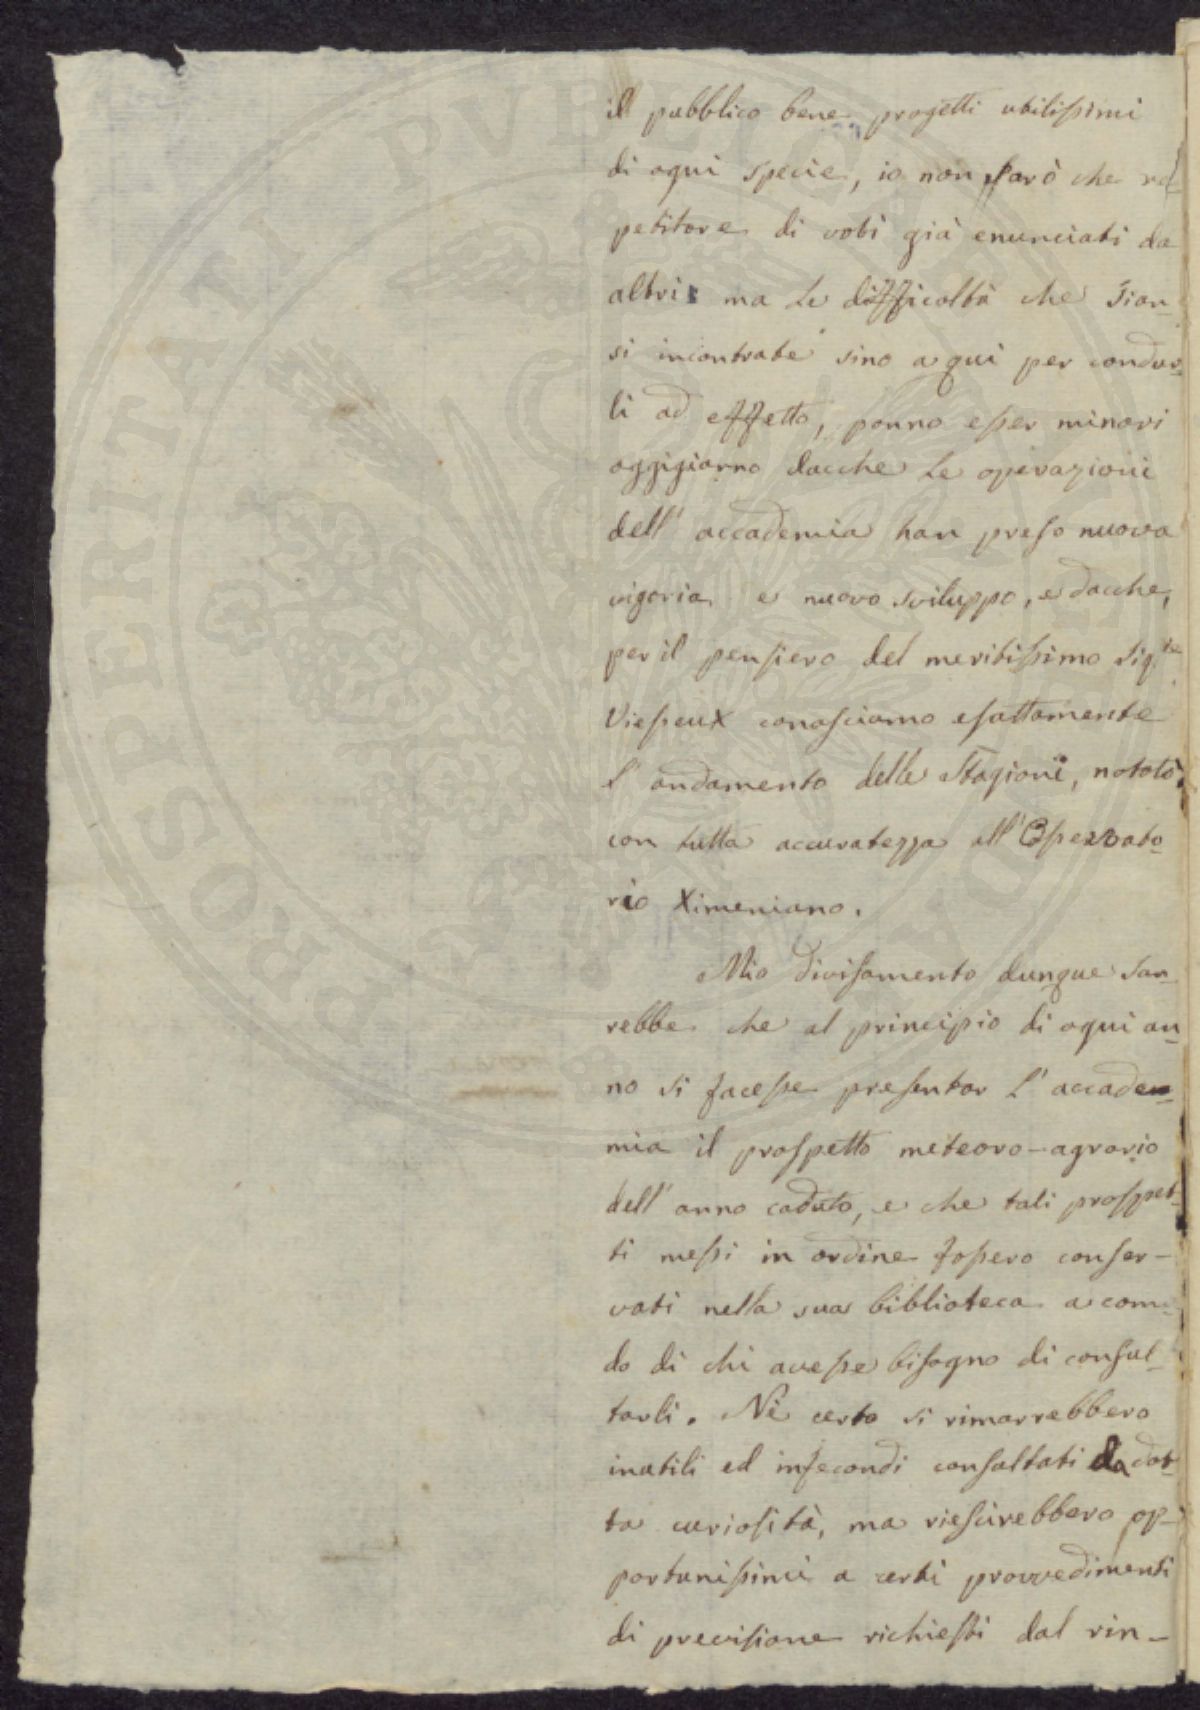 il pubblico bene progetti utilissimi
di ogni specie, io non sarò che re-
petitore di voti già enunciati da
altri: ma le difficoltà che sian-
si incontrate sino a qui per condur-
li ad effetto, ponno esser minori
oggigiorno dacche le operazioni
dell' accademia han preso nuova
vigoria e nuovo sviluppo, e dacche,
per il pensiero del meritissimo Sig.re
Viesseux conosciamo esattamente
l' andamento delle Stagioni, notato
con tutta accuratezza all' Osservato-
rio Ximeniano.
Mio divisamento dunque sa-
rebbe che al principio di ogni an-
no si facesse presentar l' accade-
mia il prospetto meteoro-agrario
dell' anno caduto, e che tali prospet-
ti messi in ordine fossero conser-
vati nella sua biblioteca a como-
do di chi avesse bisogno di consul-
tarli. Nè certo si rimarrebbero
inutili ed infecondi consultati da dot-
ta curiosità, ma riescirebbero op-
portunissimi a certi provvedimenti
di precisione richiesti dal rin-
PROSPERITATI PVBLICAE AVGENDAE